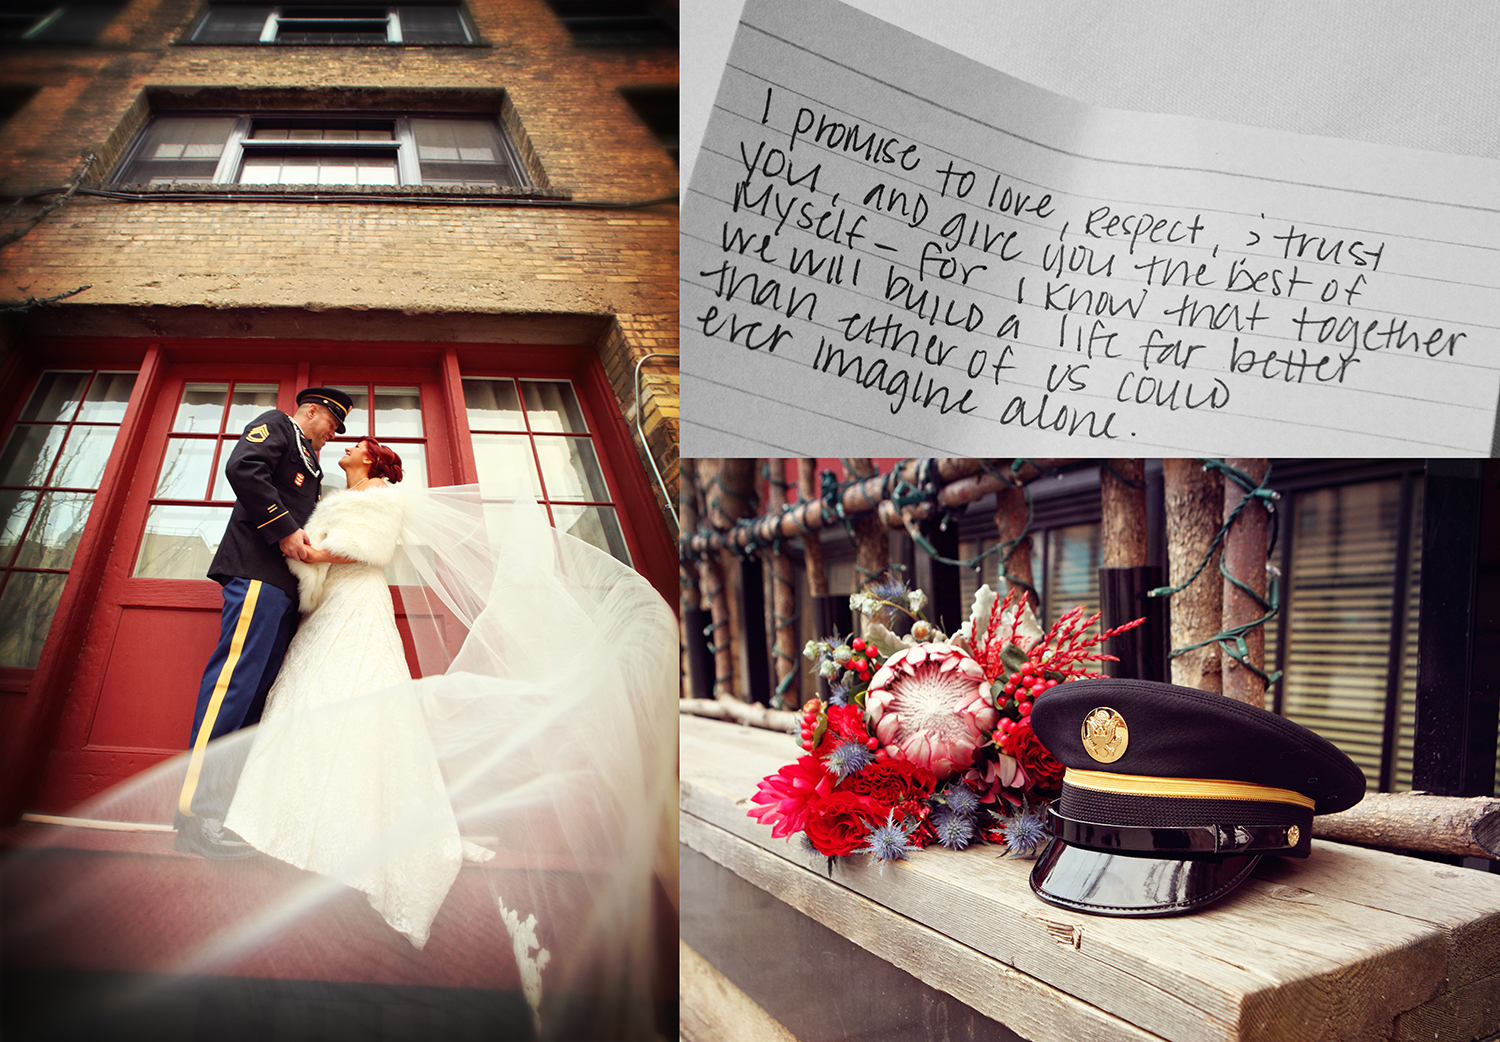 I promise to love, respect, & trust
you, and give you the best of
myself – for I know that together
we will build a life far better
than either of us could
ever imagine alone.